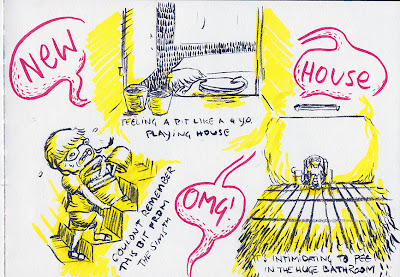 NEW
HOUSE
FEELING A BIT LIKE A 4 Y.O.
PLAYING HOUSE
COULDN'T REMEMBER
THIS BIT FROM
THE
OMG!
INTIMIDATING TO PEE
IN THE HUGE BATHROOM